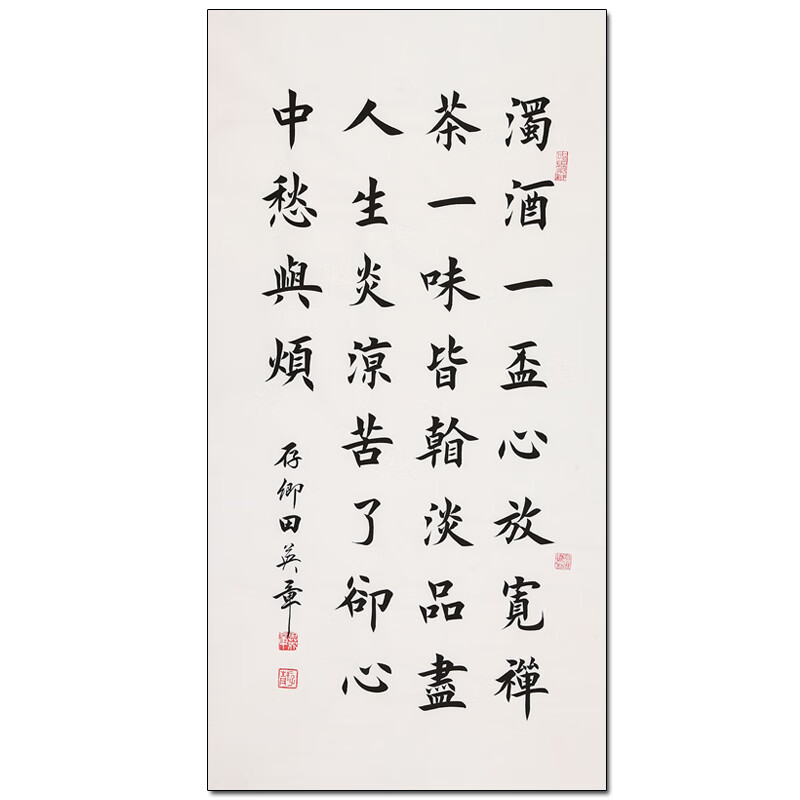 濁酒一盃心放寬禪
茶一味皆淡品盡
人生炎涼苦了卻心
中愁與煩
存卿田英章